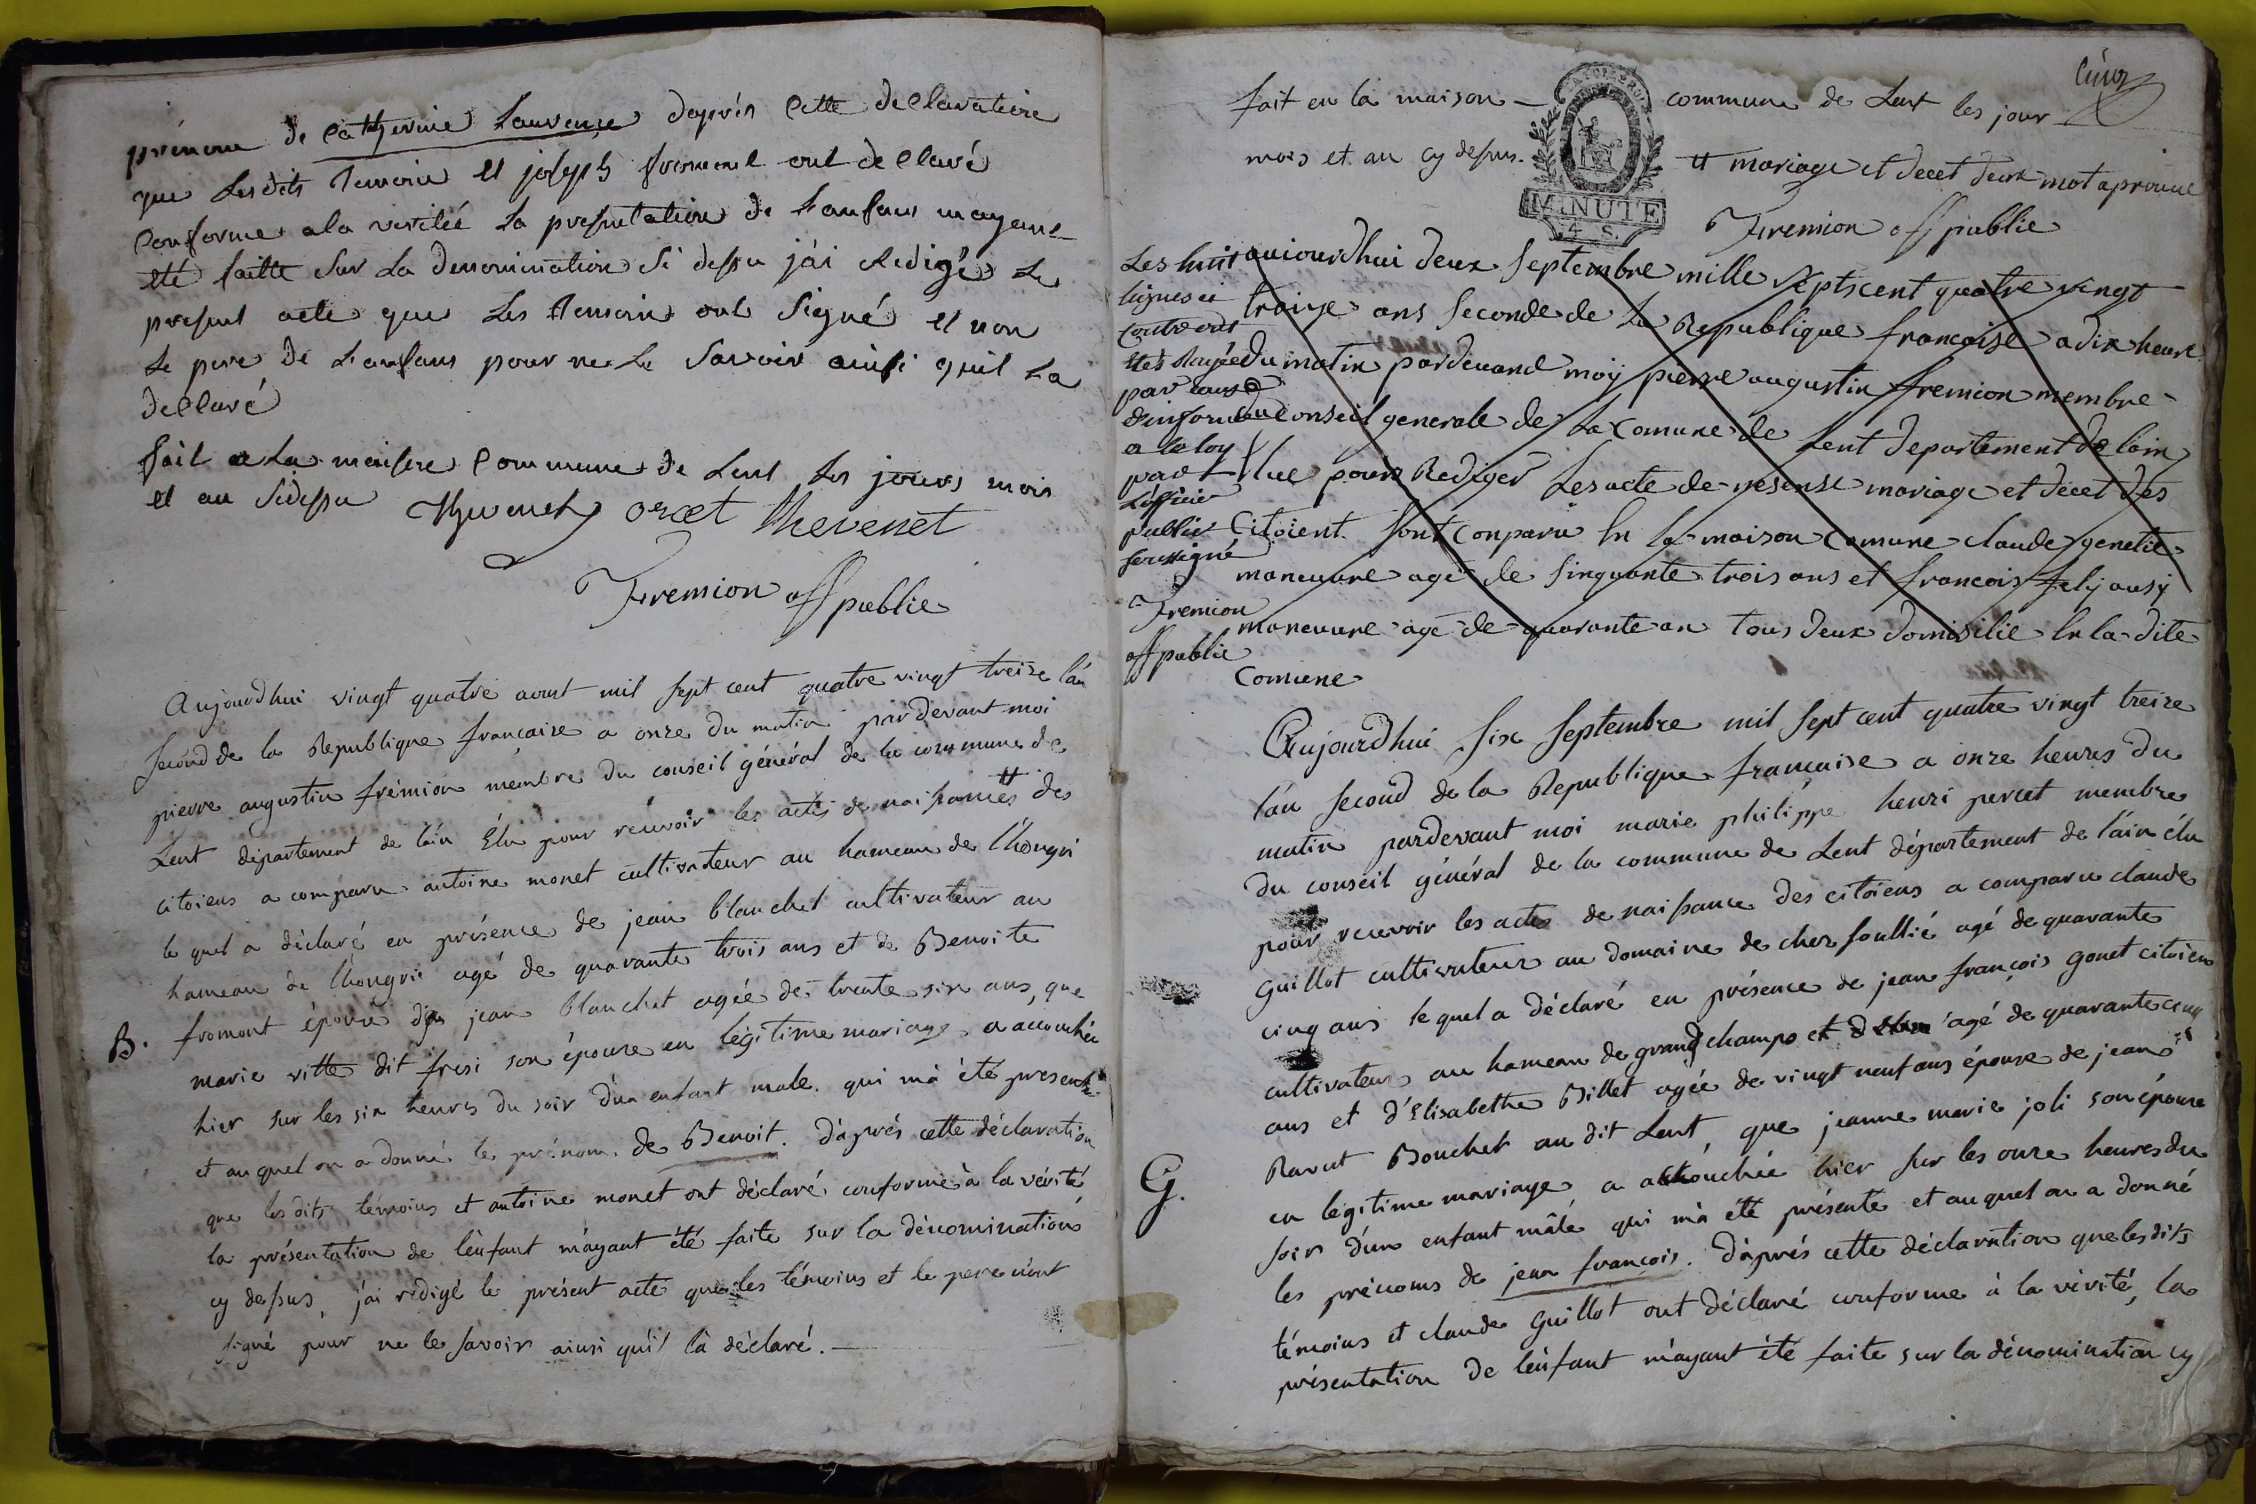 prénom de Catherine Laurence daprés Cette declaration
que Lesdits Temoin et joseph froment ont declaré
Conforme a la veritée La presentation de Lanfans mayant
été faitte Sur La denomination Si dessu j'ai Redigé Le
present acte que Les Temoins ont Signé et non
Le pere de Lanfans pour ne Le Savoir ainsi quil La
declaré
fait a La maison Commune de Lent Les jours mois
et an Sidessu Thevenet oret thevenet
Fremion off public
Aujourdhui vingt quatre aout mil sept cent quatre vingt treize l'an
second de la République française a onze du matin pardevant moi
pierre augustin frémion membre du conseil général de la commune de
Lent département de l'ain Élu pour recevoir les actes de naissances tt des
citoiens a comparu antoine monet cultivateur au hameau de l'hongri
le quel a déclaré en présence de jean blanchet cultivateur au
hameau de l'hongrie agé de quarante trois ans et de Benoite
B. fromont épouse de jean Blanchet agée de trente six ans, que
marie vitte dit fresi son épouse en légitime mariage a accouchée
hier sur les six heures du soir d'un enfant male qui m'a été presenté
et au quel on a donné le prénom de Benoit. D'après cette déclaration
que lesdits témoins et antoine monet ont déclaré conforme à la vérité
la présentation de l'enfant m'ayant été faite sur la dénomination
cy dessus, j'ai rédigé le présent acte que les témoins et le pere n'ont
signé pour ne le savoir ainsi qu'il l'a déclaré.
fait en la maison commune de Lent les jour
mois et an cy dessus.
tt mariage et decet deux mot aprouvé
Fremion off public
MINUTE
4. S.
Les huit
lignes ci
contre ont
étés Rayée
par cause
d'informe
a la loy
par
L'officier
public
soussigné
Fremion
off public
aujourdhui deux Septembre mille septscent quatre vingt
traize ans Seconde de La Republique francaise a dix heure
du matin pardevand moy pierre augustin fremion membre
du Conseil generale de La Comune de Lent departement de lain
Elue pour Rediger Les acte de nesense mariage et decet des
Citoient. Sont conparu En la maison Comune claude genetie
maneuvre agé de sinquante trois ans et francois fely ausy
maneuvre agé de quarante an tous deux domisilié En la dite
Comune
Aujourdhui six septembre mil sept cent quatre vingt treize
l'an second de la République française a onze heures du
matin pardevant moi marie philippe henri percet membre
du conseil général de la commune de Lent département de l'ain élu
pour recevoir les actes de naissance des citoiens a comparu claude
Guillot cultivateur au domaine de chez foullié agé de quarante
cinq ans le quel a déclaré en présence de jean françois gonet citoien
cultivateur au hameau de grand champs et agé de quarante cinq
ans et d'Elisabethe Billet agée de vingt neuf ans épouse de jean
Ravut Bouchet au dit Lent, que jeanne marie joli son épouse
G. en légitime mariage a accouchée hier sur les onze heures du
soir d'un enfant mâle qui m'a été présenté et au quel on a donné
les prénoms de jean françois. D'après cette déclaration que lesdits
témoins et claude Guillot ont déclaré conforme à la vérité, la
présentation de l'enfant m'ayant été faite sur la dénomination cy